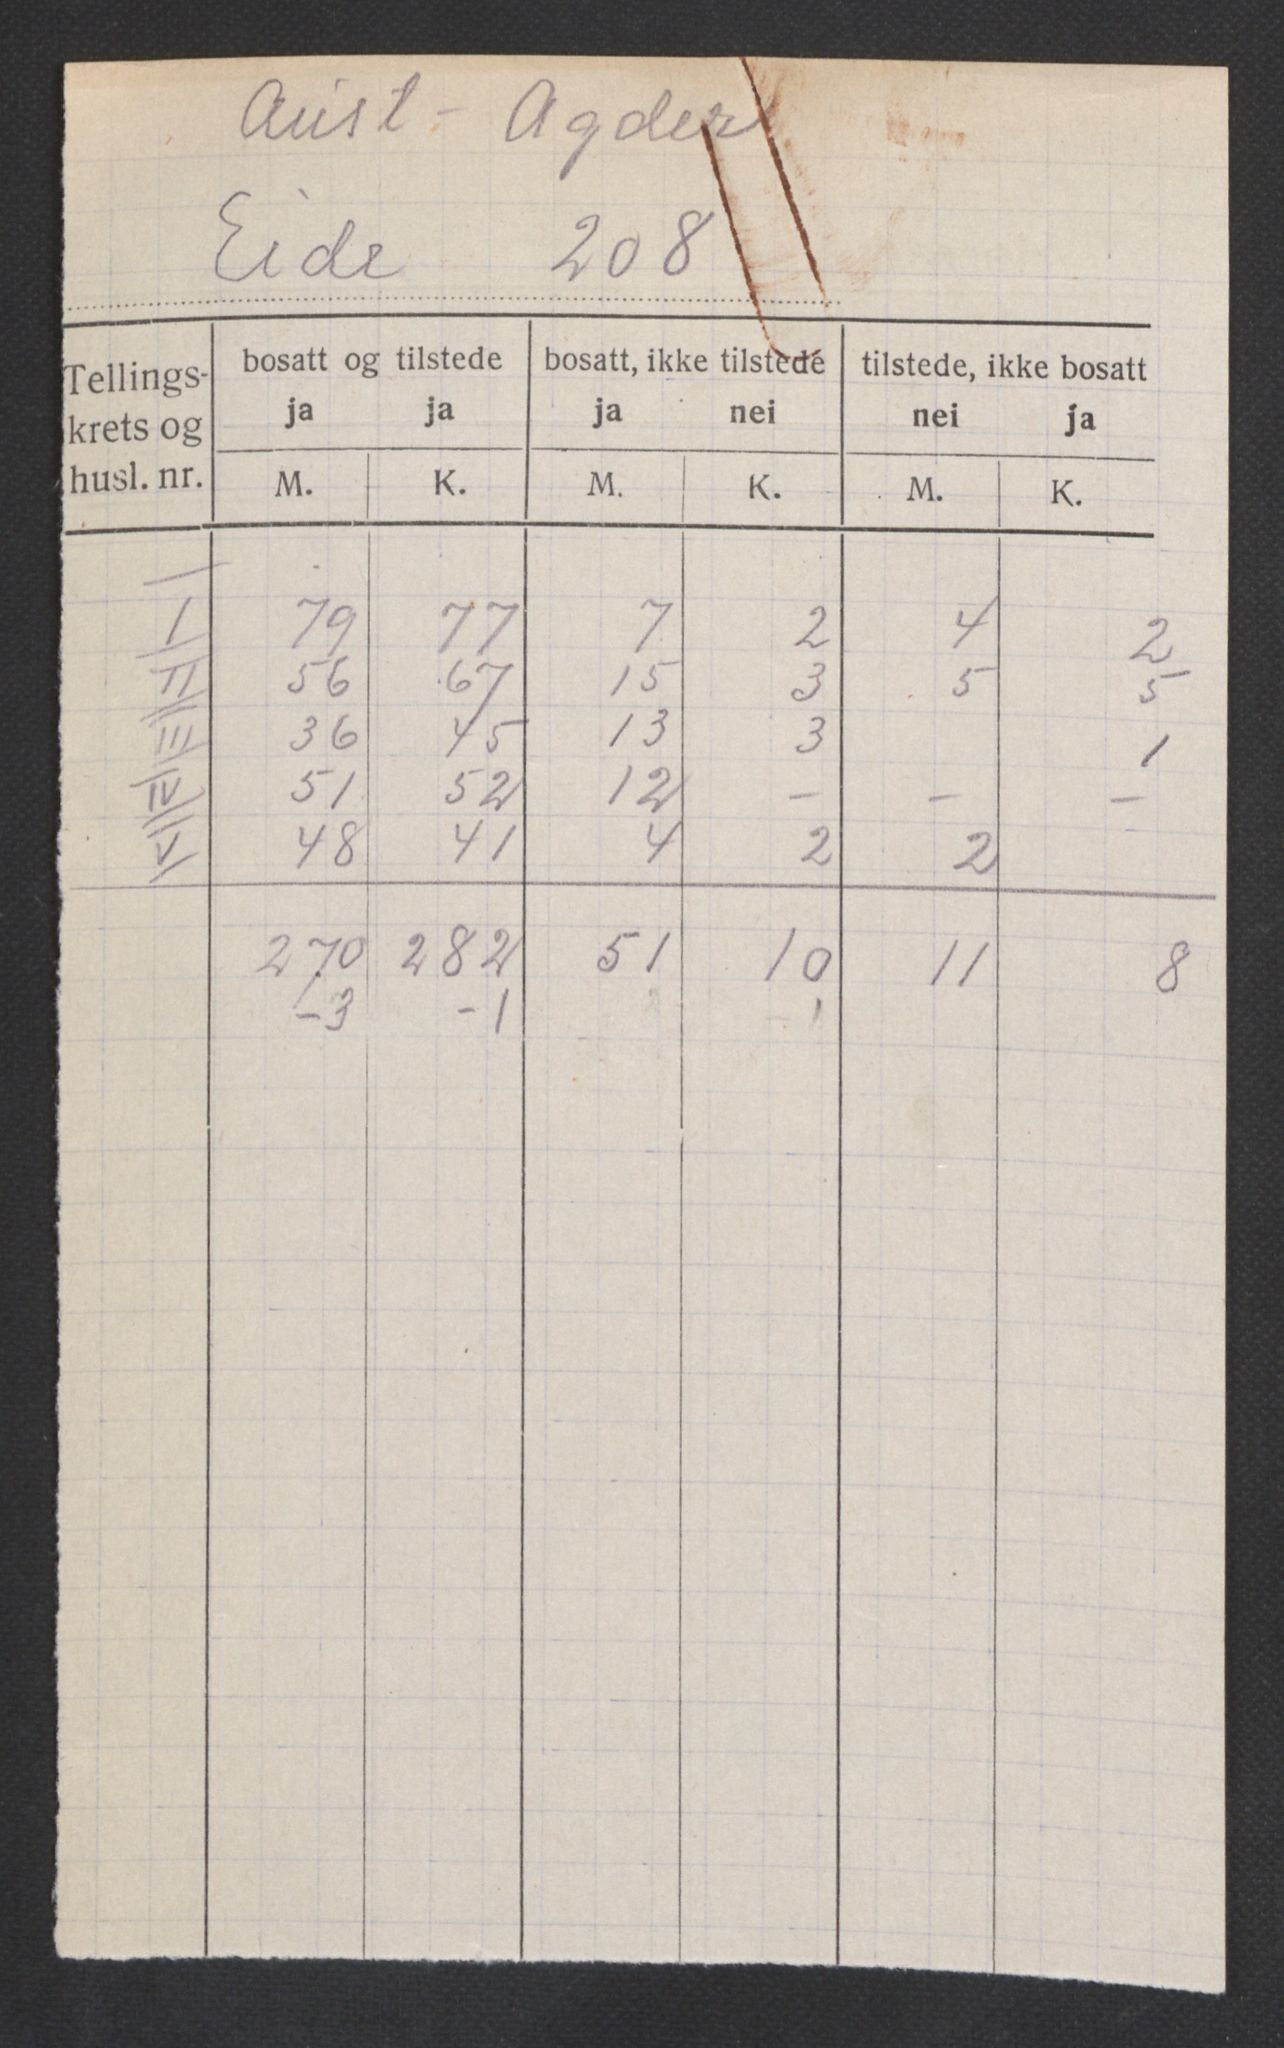 Aust-Agder
Eide 208
Tellings-krets og husl. nr. | bosatt og tilstede | bosatt, ikke tilstede | tilstede, ikke bosatt
ja ja ja nei nei ja
M. K. M. K. M. K.
I 79 77 7 2 4 2
II 56 67 15 3 5 5
III 36 45 13 3 1
IV 51 52 12 - - -
V 48 41 4 2 2
270 282 51 10 11 8
-3 -1